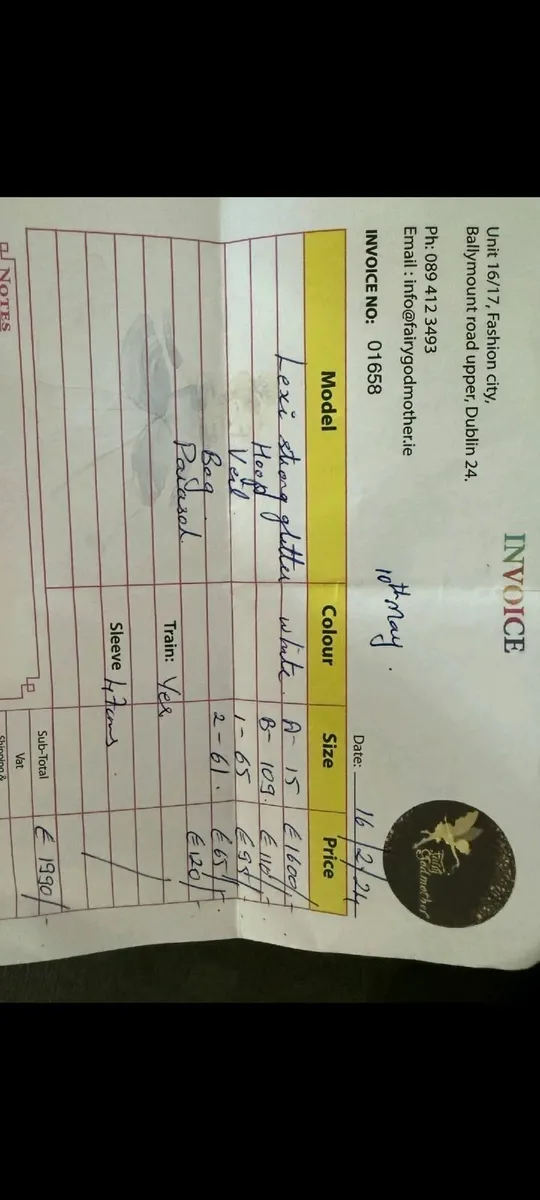 INVOICE
Unit 16/17, Fashion city,
Ballymount road upper, Dublin 24.
Ph: 089 412 3493
Email : info@fairygodmother.ie
Fairy
Godmother
INVOICE NO: 01658
10th May.
Date: 16/2/24
Model Colour Size Price
Lexi strong glitter white. A- 15 €1600/-
Hoop B- 109. €110/-
Veil 1- 65 €95/-
Bag 2- 61. €65/-
Parasol €120/-
Train: Yes
Sleeve 47cms.
Sub-Total €1990/-
Vat
Shipping &
NOTES